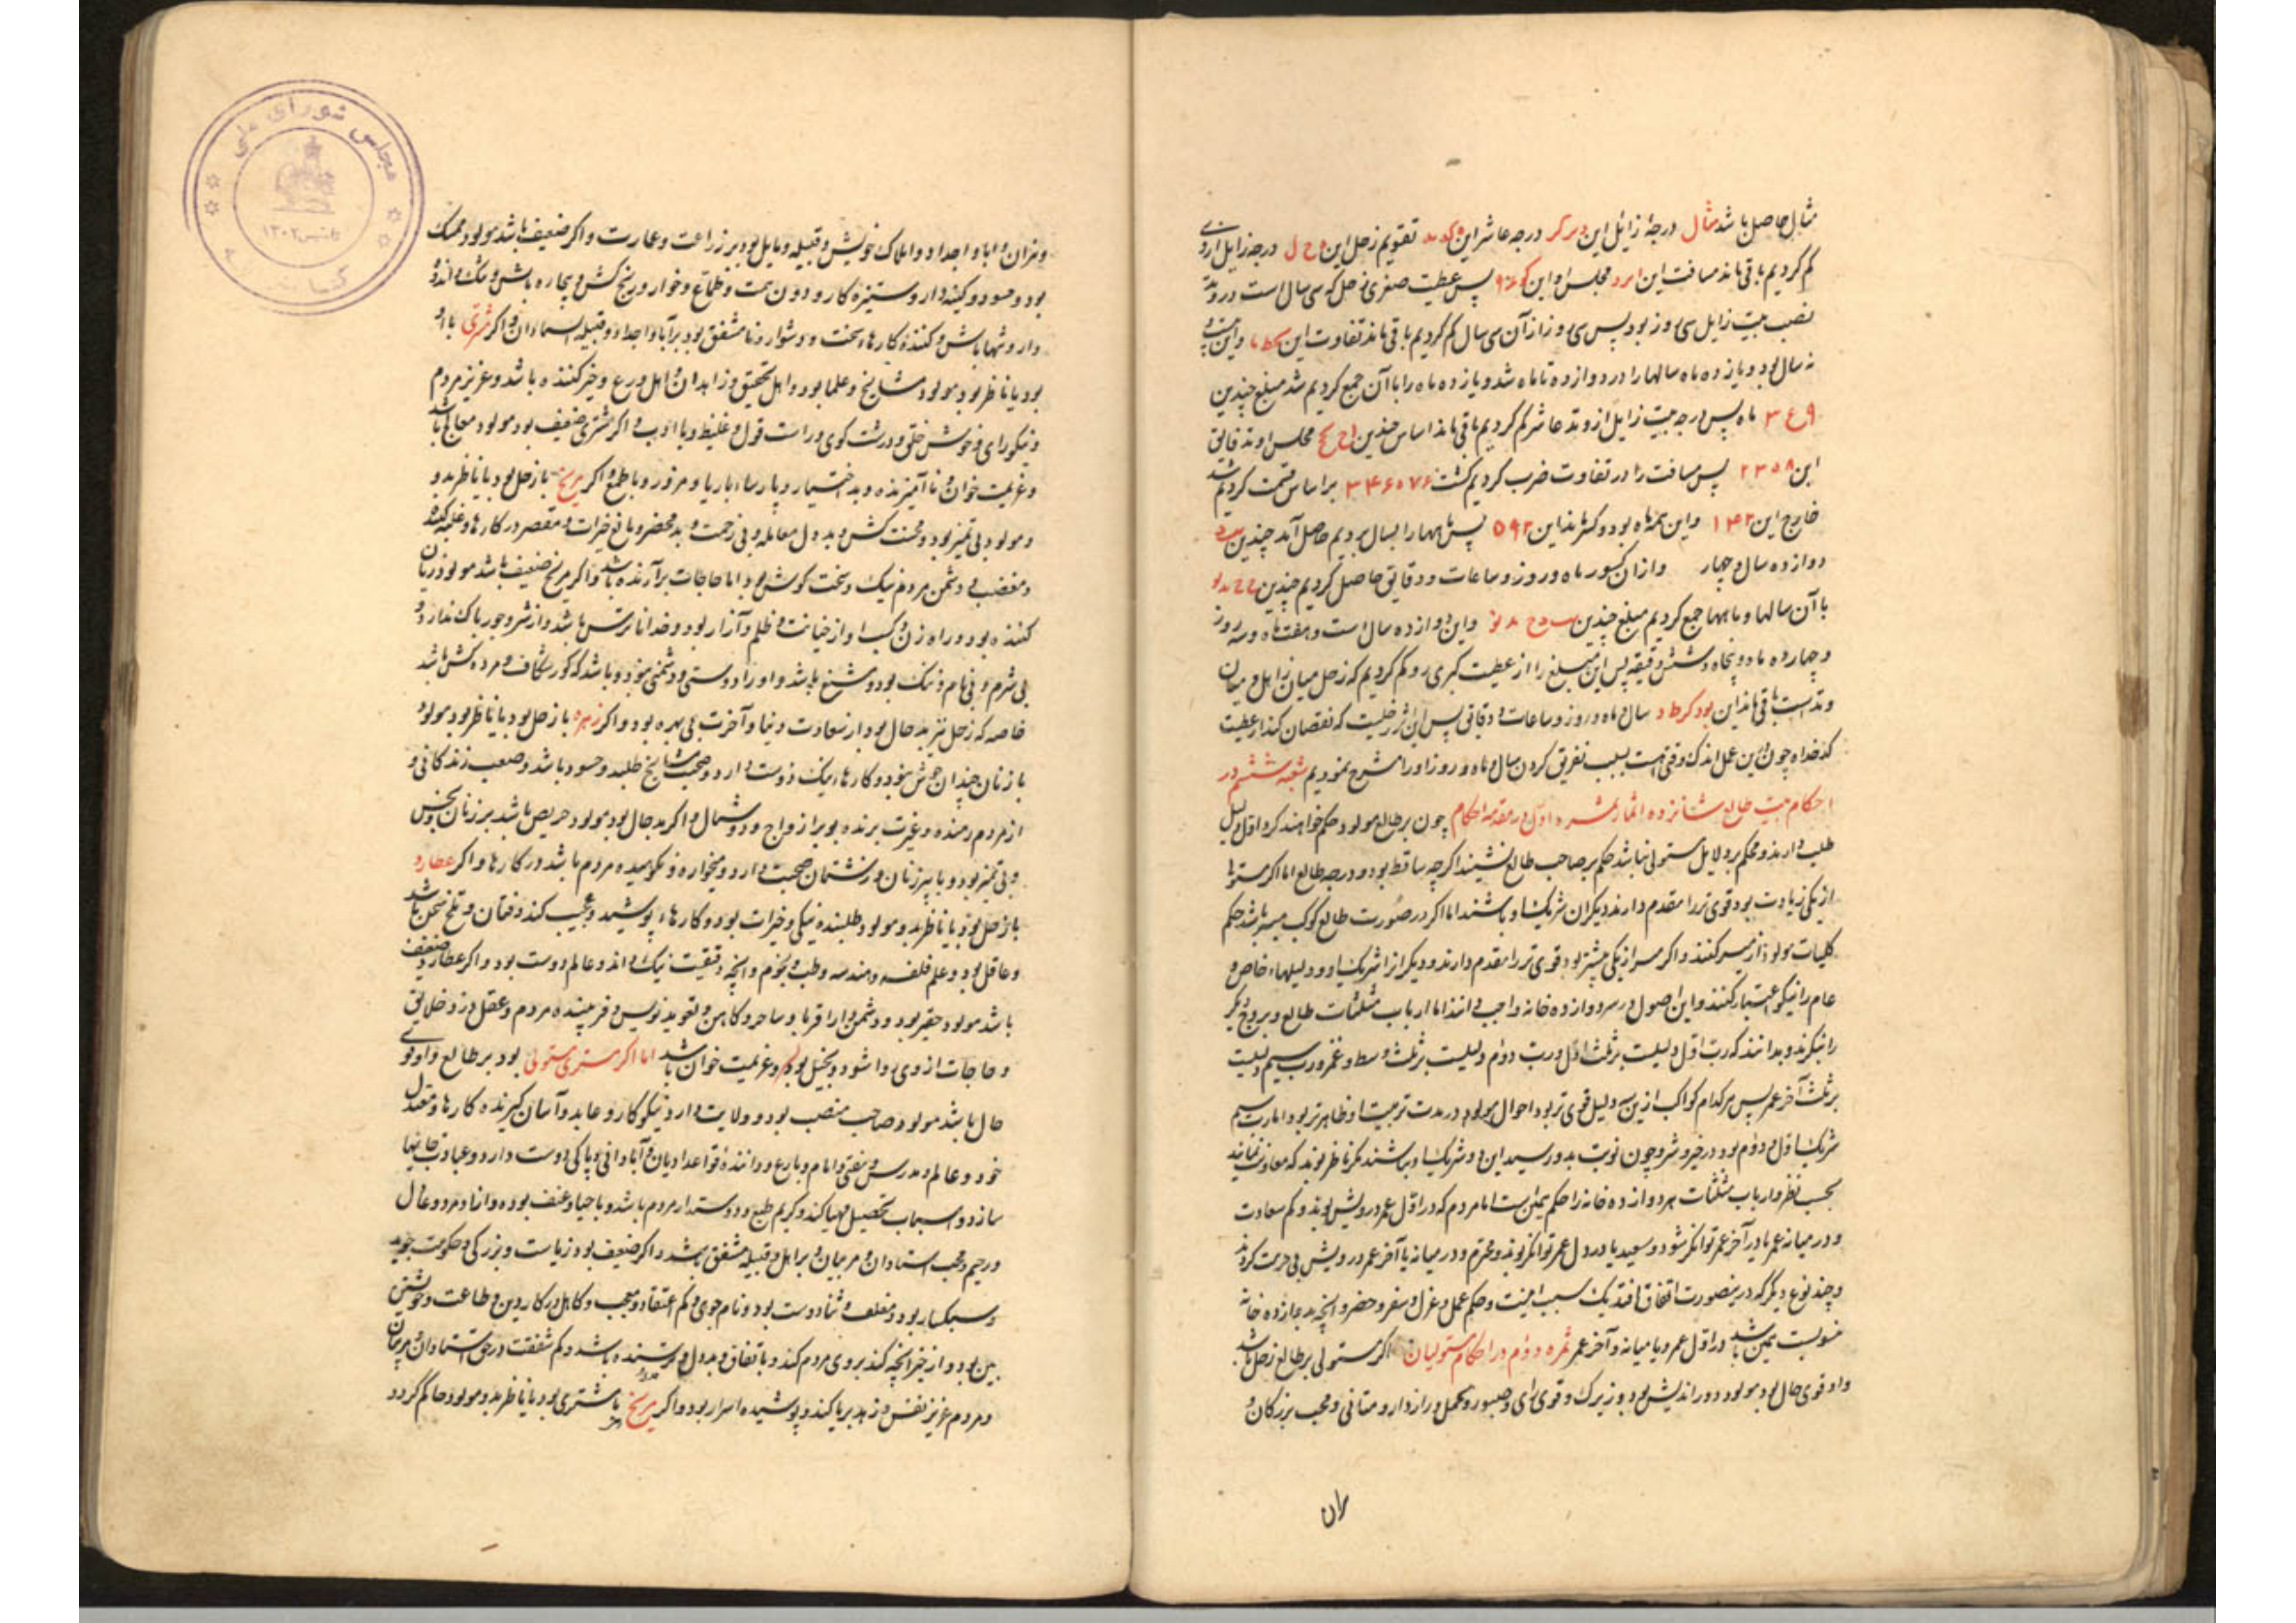 مثال حاصل باشد مثال درجهٔ زایل این درجه عاشر این تقویم زحل این درجه زایل از وی
کم کردیم باقی ماند مسافت این مجلس او این پس عطیت صغری زحل که سی سال است در وتد
نصیب بیت زایل سی روز بود پس سی روز از آن سی سال کم کردیم باقی ماند تفاوت این واین
نه سال بود و یازده ماه سالها را در دوازده تا ماه شد و یازده ماه را با آن جمع کردیم شد مبلغ چندین
ماه پس درجه بیت زایل از وتد عاشر کم کردیم باقی ماند اساس چندین مجلس او دقایق
این ۲۳۵۸ پس مسافت را در تفاوت ضرب کردیم کشت ۳۴۶۰۷۶ بر اساس قسمت کردیم شد
خارج این ۱۴۳ واین ماه بود و کسر ماند این ۵۹۲ پس ماهها را بسال بردیم حاصل آمد چندین
دوازده سال و چهار وازان کسور ماه و روز و ساعات و دقایق حاصل کردیم چندین
با آن سالها و ماهها جمع کردیم مبلغ چندین واین دوازده سال است و هفت ماه و سه روز
و چهارده و پنجاه و شش دقیقه پس این مبلغ را از عطیت کبری رو کم کردیم که زحل میان زایل و میان
وتد است باقی ماند این سال و ماه و روز و ساعات و دقایق پس این اثر زحلیست که نقصان کند از عطیت
کدخداه چون این عمل اندک دقتی است بسبب تفریق کردن سال و ماه و روز او را مشرح نمودیم شعبه ششم در
احکام بیت طالع شانزده اثمار ثمره اول در مقدمه احکام چون بر طالع مولود حکم خواهند کرد اول دلیل
طلب دارند و محکم بر دلایل مستولی نباشد حکم بر صاحب طالع نشیند اکرچه ساقط بود و درجه طالع اما اکر مستولی
از یکی زیادت بود قوی تر را مقدم دارند دیکران شریک او باشند اما اکر در صورت طالع کوکب میسر باشد حکم
کلیات مولود از میسر کنند و اکر میسر از یکی بیشتر بود قوی تر را مقدم دارند و دیکر انرا شریک او و دلیلهاء خاص و
عام را نیکو اعتبار کنند و این اصول در سر دوازده خانه واجب دانند اما ارباب مثلثات طالع و بروج دیکر
را بنکرند و بدانند که رب اول دلیلست بر ثلث اول و رب دوم دلیلست بر ثلث وسط و عمر و رب سیم دلیلست
بر ثلث آخر عمر پس هر کدام کواکب ازین سه دلیل قوی تر بود احوال مولود در مدت تربیت او ظاهرتر بود اما رب سیم
شریک اول و دوم بود در خیر و شر و چون نوبت بدو رسید این دو شریک او باشند مکر ناظر بوند که معاونت نمایند
بحسب نظر و ارباب مثلثات هر دوازده خانه را حکم همین است اما مردم که در اول عمر درویش بوند و کم سعادت
و در میانه عمر یا در آخر عمر توانکر شود و سعید یا در اول عمر توانکر بوند و محترم و در میانه یا آخر عمر درویش بی حرمت کردند
و چند نوع دیکر که در ینصورت اتفاق افتد یک سبب اینست و حکم عمل و عزل و سفر و حضر و آنچه بدوازده خانه
منسوبست همین باشد در اول عمر و یا میانه و آخر عمر ثمره دوم در احکام مستولیان اکر مستولی بر طالع زحل باشد
و او قوی حال بود مولود دور اندیش بود و زیرک و قوی رای و صبور و متحمل و رازدار و متانی و محب بزرکان و
ران
مجلس شورای ملی
۱۳۰۲
کتابخانه
ومران و ابا و اجداد و املاک خویش و قبیله و مایل بود بر زراعت و عمارت و اکر ضعیف باشد مولود ممسک
بود و حسود و کینه دار و ستیزه کار و دون همت و طماع و خوار و رنج کش و بیچاره باش و تنگ و اندوه
دار و تنها باش و کننده کارهاء سخت و دشوار و نامشفق بود بر آبا و اجداد و قبیله و استادان و اکر مشتری با او
بود یا ناظر بود مولود مشایخ و علما بود و اهل تحقیق و زاهدان و اهل ورع و خیر کننده باشد و عزیز مردم
و نیکو رای و خوش خلق و درشت کوی و راست قول و غلیظ و با ادب و اکر مشتری ضعیف بود مولود معالج باشد
و عزیمت خوان و نا آمیزنده و بد اختیار و پارساء با ریا و مزور و با طمع و اکر مریخ با زحل بود یا ناظر بدو
و مولود بی تمیز بود و محنت کش و بد دل معامله و بی زحمت و بد محضر و مانع خیرات و مقصر در کارها و غلبه کننده
و مغضب و دشمن مردم نیک و سخت کوش بود اما حاجات برآرنده باشد و اکر مریخ ضعیف باشد مولود زیان
کننده بود و راه زن و کسب او از خیانت و ظلم و آزار بود و خدا ناترس باشد و از شر و جور باک ندارد و
بی شرم و بی نام و ننک بود و مشنع باشد و او را دوستی و دشمنی نبود و باشد که کور شکاف و مرده کش باشد
خاصه که زحل نیز بد حال بود از سعادت دنیا و آخرت بی بهره بود و اکر زهره با زحل بود یا ناظر بود مولود
با زنان چندان خوش نبود و کارهاء نیک دوست دارد و صحبت مشایخ طلبد و حسود باشد و صعب زندکانی و
از مردم رمنده و غیرت برنده بود بر ازواج و دوشمال و اکر بد حال بود مولود حریص باشد بر زنان نحس
و بی تمیز بود و با پیر زنان و زشتان صحبت دارد و میخواره و نکوهیده مردم باشد در کارها و اکر عطارد
با زحل بود یا ناظر بدو مولود طلبنده نیکی و خیرات بود و کارهاء پوشیده و عجیب کند و فتان و تلخ سخن باشد
و عاقل بود و علم فلسفه و هندسه و طب و نجوم و آنچه دقیقست نیک داند و عالم دوست بود و اکر عطارد ضعیف
باشد مولود حقیر بود و دشمن دارد اقربا و ساحر و کاهن و تعویذ نویس و فریبنده مردم و عقل دزد خلایق
و حاجات از وی روا شود و بخیل بود و عزیمت خوان باشد اما اکر مشتری مستولی بود بر طالع و او قوی
حال باشد مولود صاحب منصب بود و ولایت دارد و نیکو کار و عابد و آسان کیرنده کارها و معتدل
خود و عالم و مدرس و مفتی و امام و بارع و داننده قواعد ادیان و آبادانی و پاکی دوست دارد و عبادت جایها
سازد و اسباب تحصیل مهیا کند و کریم طبع و دوستدار مردم باشد و با حیا و عفیف بود و دانا و مرد و عادل
و رحیم و محب استادان و مربیان و بر اهل و قبیله مشفق باشد و اکر ضعیف بود ریاست و بزرکی و حکومت جوید
و سبکسار بود و متملق و ثنا دوست بود و نام جوی و کم اعتقاد و معجب و کاهل در کار دین و طاعت و خویشتن
بین بود و از خیر آنچه کند بروی مردم کند و با نفاق و بد دل و ترسنده باشد و کم شفقت در حق استادان و مربیان
و مردم عزیز نفس و زهد بریا کند و پوشیده اسرار بود و اکر مریخ با مشتری بود یا ناظر بدو مولود حاکم گردد